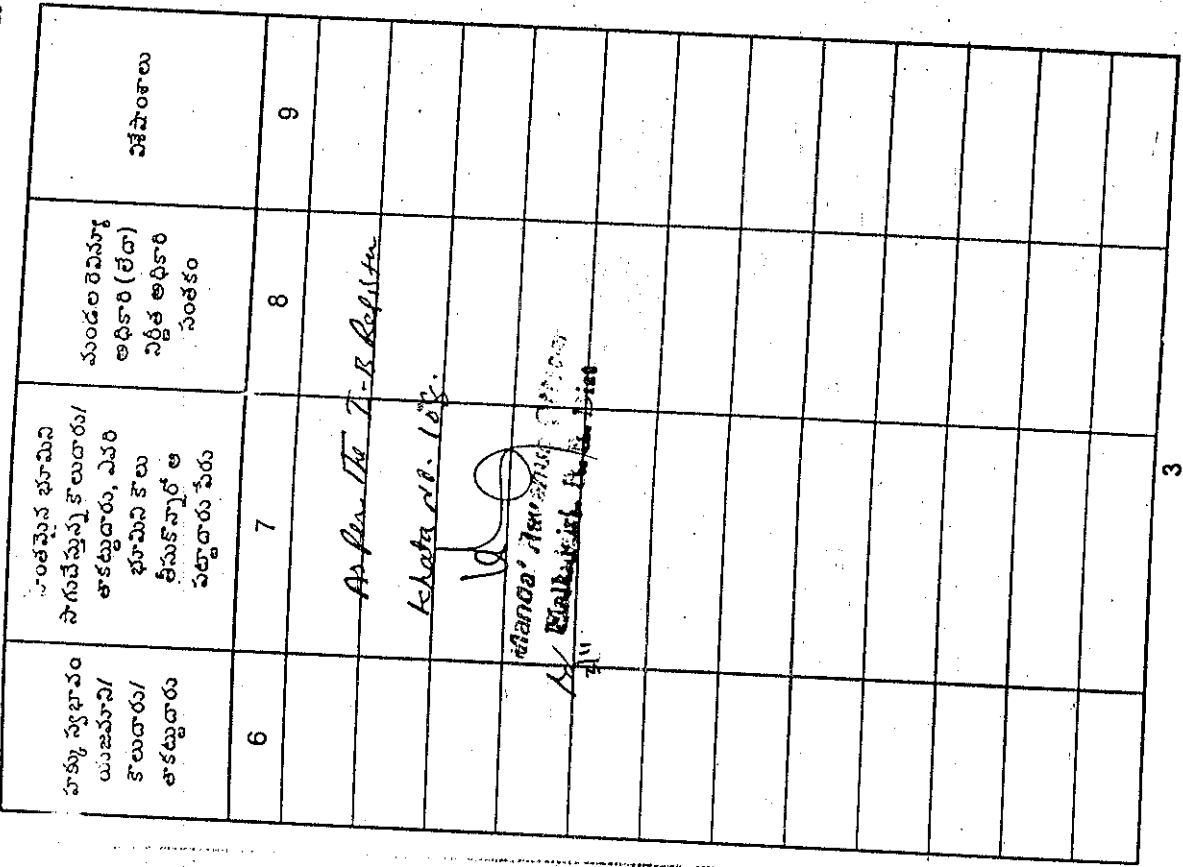 హక్కు స్వభావం
యజమాని/
కౌలుదారు/
తాకట్టుదారు
సొంతమైన భూమిని
సాగుచేస్తున్న కౌలుదారు/
తాకట్టుదారు, ఎవరి
భూమిని కౌలు
తీసుకొన్నారో ఆ
పట్టాదారు పేరు
మండల రెవిన్యూ
అధికారి (లేదా)
నిర్ణీత అధికారి
సంతకం
విశేషాంశాలు
6 7 8 9
As Per The 1-B Register
Khata No. 108.
Mandal Revenue Officer
3